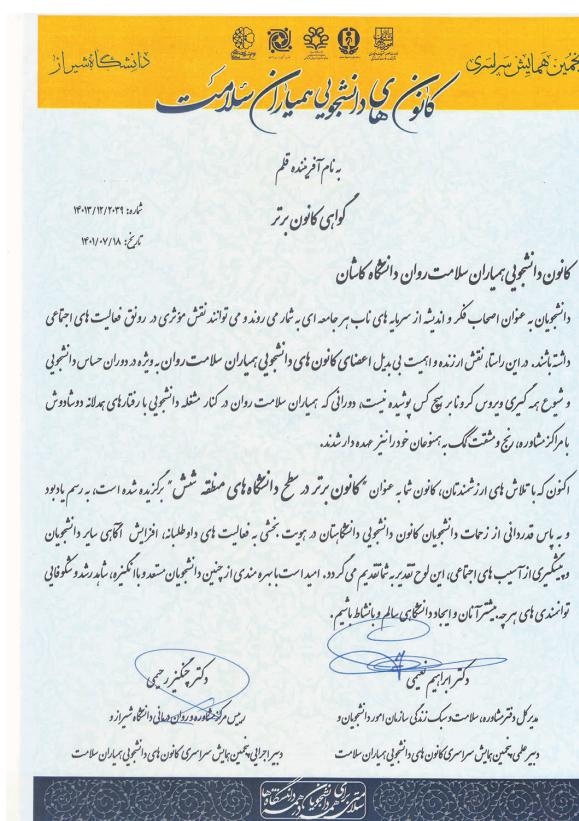 پنجمین همایش سراسری
دانشگاه شیراز
کانون های دانشجویی همیاران سلامت
به نام آفریننده قلم
گواهی کانون برتر
شماره: ۱۴۰۱۳/۱۲/۲۰۳۹
تاریخ: ۱۴۰۱/۰۷/۱۸
کانون دانشجویی همیاران سلامت روان دانشگاه کاشان
دانشجویان به عنوان اصحاب فکر و اندیشه از سرمایه های ناب هر جامعه ای به شمار می روند و می توانند نقش مؤثری در رونق فعالیت های اجتماعی
داشته باشند. در این راستا، نقش ارزنده و اهمیت بی بدیل اعضای کانون های دانشجویی همیاران سلامت روان به ویژه در دوران حساس دانشجویی
و شیوع همه گیری ویروس کرونا بر هیچ کس پوشیده نیست، دورانی که همیاران سلامت روان در کنار مشغله دانشجویی با رفتارهای همدلانه دوشادوش
با مراکز مشاوره، رنج و مشقت کمک به همنوعان خود را نیز عهده دار شدند.
اکنون که با تلاش های ارزشمندتان، کانون شما به عنوان "کانون برتر در سطح دانشگاه های منطقه شش" برگزیده شده است، به رسم یادبود
و به پاس قدردانی از زحمات دانشجویان کانون دانشجویی دانشگاهتان در هویت بخشی به فعالیت های داوطلبانه، افزایش آگاهی سایر دانشجویان
و پیشگیری از آسیب های اجتماعی، این لوح تقدیر به شما تقدیم می گردد. امید است با بهره مندی از چنین دانشجویان مستعد و با انگیزه، شاهد رشد و شکوفایی
توانمندی های هر چه بیشتر آنان و ایجاد دانشگاهی سالم و بانشاط باشیم.
دکتر ابراهیم نعیمی
مدیر کل دفتر مشاوره، سلامت و سبک زندگی سازمان امور دانشجویان و
دبیر علمی پنجمین همایش سراسری کانون های دانشجویی همیاران سلامت
دکتر چنگیز رحیمی
رییس مرکز مشاوره و روان درمانی دانشگاه شیراز و
دبیر اجرایی پنجمین همایش سراسری کانون های دانشجویی همیاران سلامت
سلامتی برای همه دانشجویان در همه دانشگاه ها